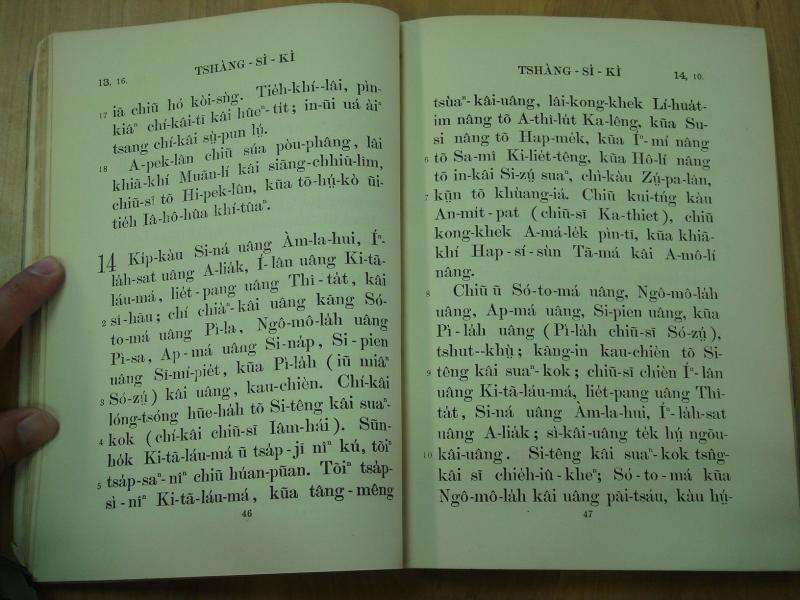 13. 16.
TSHÀNG-SÌ-KÌ
17 iā chiū hó kòi-sǹg. Tie̍h-khí--lâi, pìn-
kiâⁿ chí-kâi-tī kâi hûeⁿ-tit; in-ūi uá àiⁿ
tsang chí-kâi sṳ̀-pun lṳ́.
18 A-pek-lân chiū súa pòu-phâng, lâi
khiā-khí Muān-lí kâi siāng-chhiū-lîm,
chiū-sī tõ Hi-pek-lûn, kūa tõ-hṳ́-kò ūi-
tie̍h Iâ-hô-hûa khí-tûaⁿ.
14 Ki̍p-kàu Si-ná uâng Àm-la-hui, Íⁿ-
la̍h-sat uâng A-lia̍k, Í-lân uâng Ki-tā-
láu-má, lie̍t-pang uâng Thî-ta̍t, kâi
2 sî-hāu; chí chiàⁿ-kâi uâng kāng Só-
to-má uâng Pì-la, Ngô-mô-la̍h uâng
Pì-sa, Ap-má uâng Si-na̍p, Si-pien
uâng Sī-mí-pie̍t, kūa Pì-la̍h (iū miâⁿ
3 Só-zṳ́) kâi uâng, kau-chièn. Chí-kâi
lóng-tsóng hūe-ha̍h tõ Si-têng kâi suaⁿ-
kok (chí-kâi chiū-sī Iâm-hái). Sũn-
4 ho̍k Ki-tā-láu-má ũ tsa̍p-jī nîⁿ kú, tõiⁿ
tsa̍p-saⁿ-nîⁿ chiū húan-pūan. Tõiⁿ tsa̍p-
5 sì-nîⁿ Ki-tā-láu-má, kūa tâng-mêng
46
TSHÀNG-SÌ-KÌ
14, 10.
tsùaⁿ-kâi-uâng, lâi-kong-khek Lí-huát-
im nâng tõ A-thî-lu̍t Ka-lêng, kūa Su-
si nâng tõ Hap-me̍k, kūa Íⁿ-mí nâng
6 tõ Sa-mì Ki-lie̍t-têng, kūa Hô-lí nâng
tõ in-kâi Si-zṳ́ suaⁿ, chì-kàu Zṳ́-pa-lân,
7 kṳ̄n tõ khùang-iá. Chiū kui-tńg kàu
An-mit-pat (chiū-sī Ka-thiet), chiū
kong-khek A-má-le̍k pìn-tī, kūa khiā-
khí Hap-sí-sùn Tā-má kâi A-mô-lí
nâng.
8 Chiū ũ Só-to-má uâng, Ngô-mô-la̍h
uâng, Ap-má uâng, Si-pien uâng, kūa
Pì-la̍h uâng (Pì-la̍h chiū-sī Só-zṳ́),
tshut--khṳ̀; kāng-in kau-chièn tõ Si-
9 têng kâi suaⁿ-kok; chiū-sī chièn Íⁿ-lân
uâng Ki-tā-láu-má, lie̍t-pang uâng Thî-
ta̍t, Si-ná uâng Àm-la-hui, Íⁿ-la̍h-sat
uâng A-lia̍k; sì-kâi-uâng te̍k hṳ́ ngõu-
10 kâi-uâng. Si-têng kâi suaⁿ-kok tsûg-
kâi sī chie̍h-iû-kheⁿ; Só-to-má kūa
Ngô-mô-la̍h kâi uâng pāi-tsáu, kàu hṳ́-
47